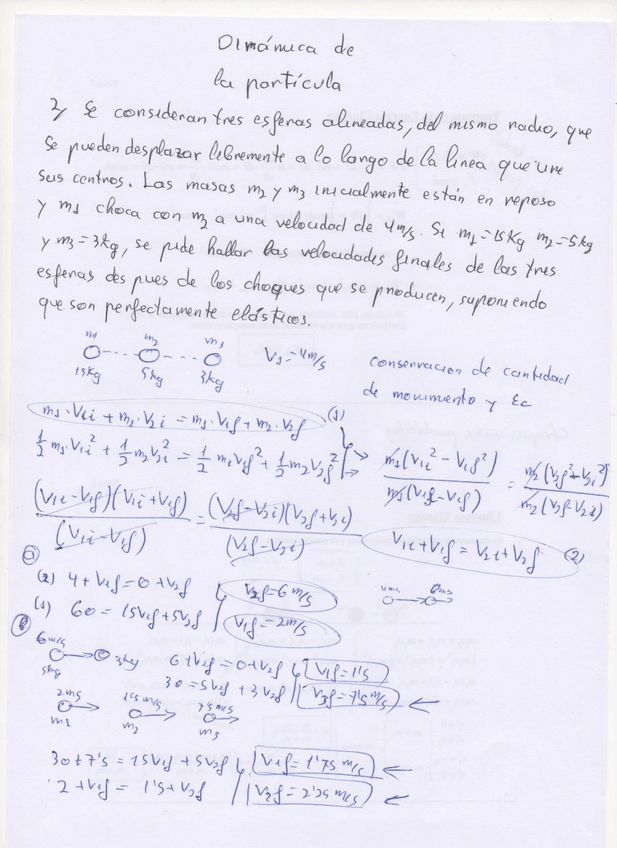 Dinámica de
la partícula
2) Se consideran tres esferas alineadas, del mismo radio, que
se pueden desplazar libremente a lo largo de la linea que une
sus centros. Las masas m₂ y m₃ inicialmente están en reposo
y m₁ choca con m₂ a una velocidad de 4m/s. Si m₁=15Kg m₂=5kg
y m₃=3kg, se pide hallar las velocidades finales de las tres
esferas despues de los choques que se producen, suponiendo
que son perfectamente elásticos.
m₁ m₂ m₃
15kg 5kg 3kg
V₁=4m/s
conservacion de cantidad
de movimiento y Ec
m₁·V₁i + m₂·V₂i = m₁·V₁f + m₂·V₂f (1)
½ m₁V₁i² + ½ m₂V₂i² = ½ m₁V₁f² + ½ m₂V₂f²
m₁(V₁i² - V₁f²) / m₁(V₁f - V₁f) = m₂(V₂f² - V₂i²) / m₂(V₂f - V₂i)
(V₁i - V₁f)(V₁i + V₁f) / (V₁i - V₁f) = (V₂f - V₂i)(V₂f + V₂i) / (V₂f - V₂i)
V₁i + V₁f = V₂i + V₂f (2)
(2) 4 + V₁f = 0 + V₂f
V₂f = 6 m/s
4m/s 6m/s
(1) 60 = 15V₁f + 5V₂f
V₁f = 2m/s
6m/s
5kg 3kg
6 + V₁f = 0 + V₂f
V₁f = 1'5
30 = 5V₁f + 3V₂f
V₃f = 7'5 m/s
2m/s 1'5 m/s 7'5 m/s
m₁ m₂ m₃
30 + 7'5 = 15V₁f + 5V₂f
V₁f = 1'75 m/s
2 + V₁f = 1'5 + V₂f
V₂f = 2'25 m/s